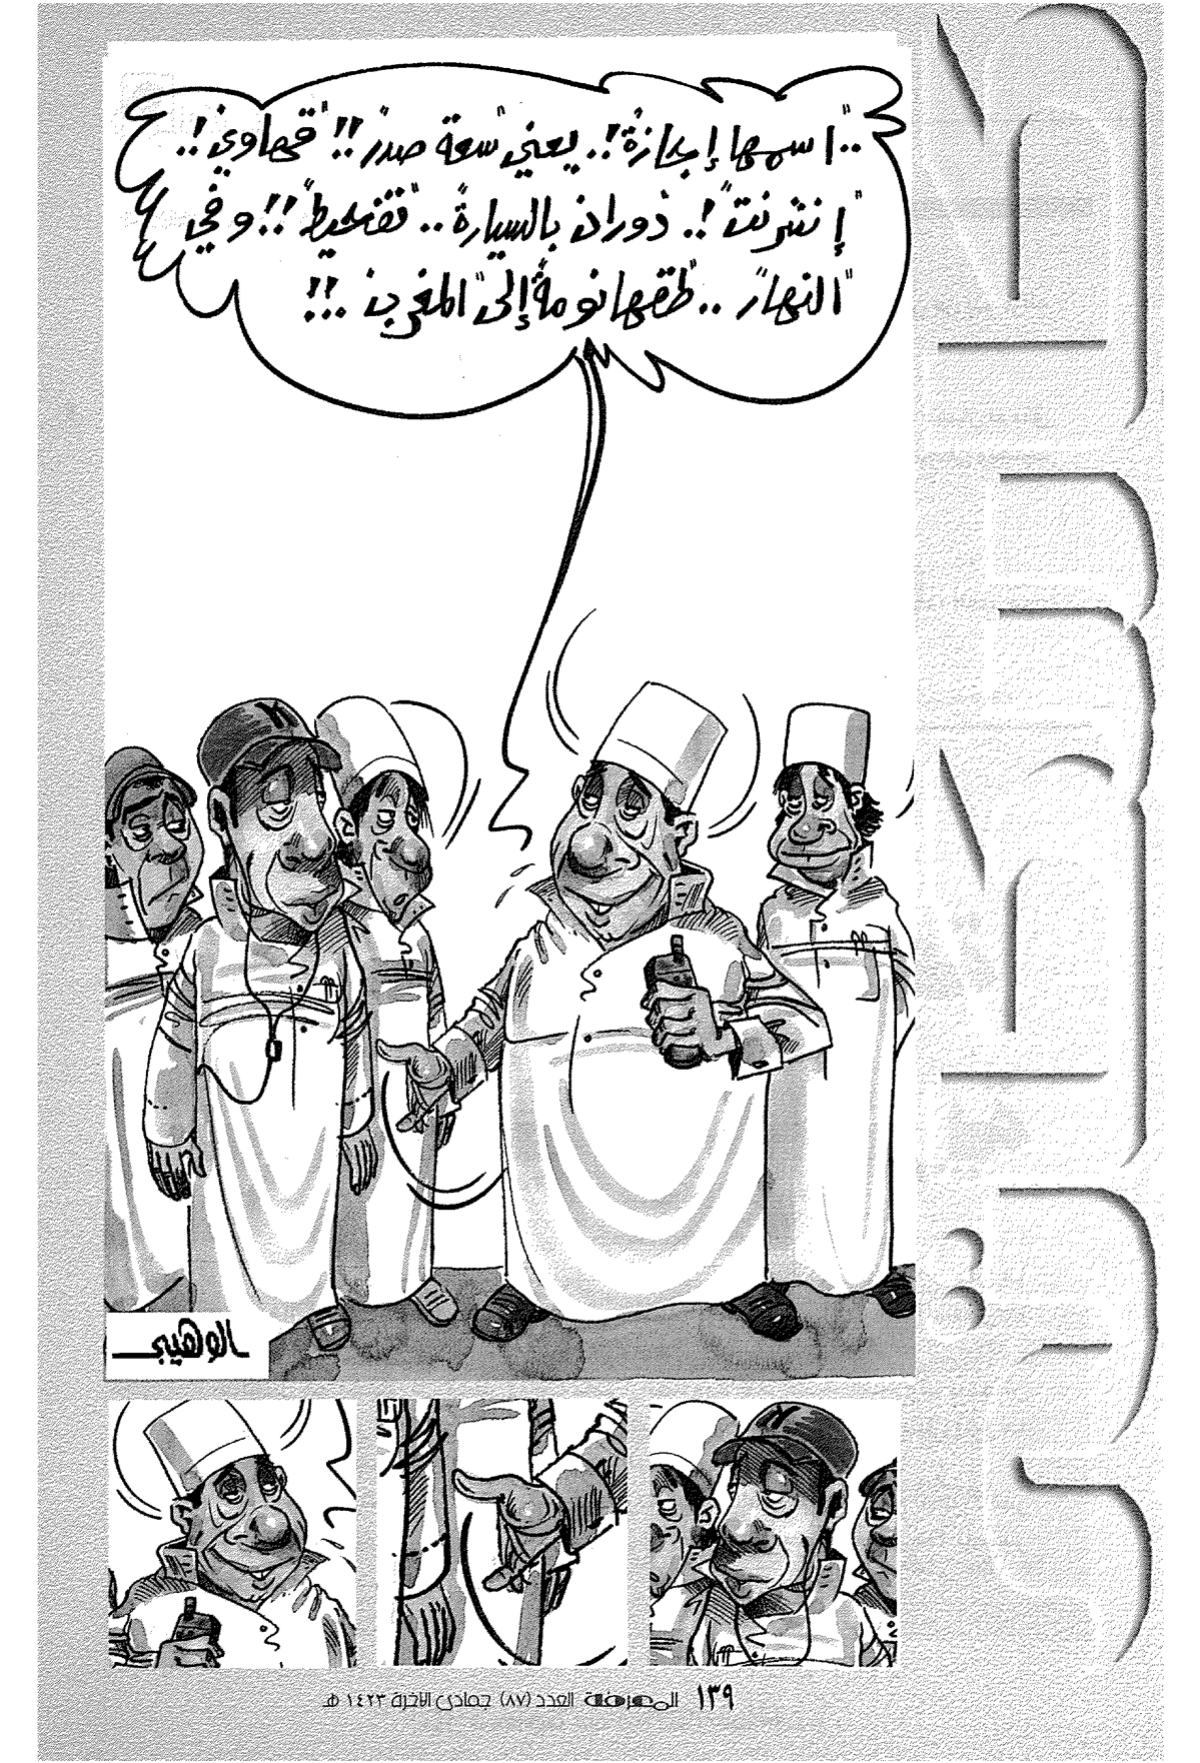 .."اسمها إجازة"!. يعني "سعة صدر"!! "قهاوي"!..
"إنترنت"!. دوران بالسيارة".. "تفحيط"!! وفي
"النهار".. "طقها نومة" إلى "المغرب"..!!
الوهيبي
١٣٩ المعرفة العدد (٨٧) جمادى الآخرة ١٤٢٣ هـ